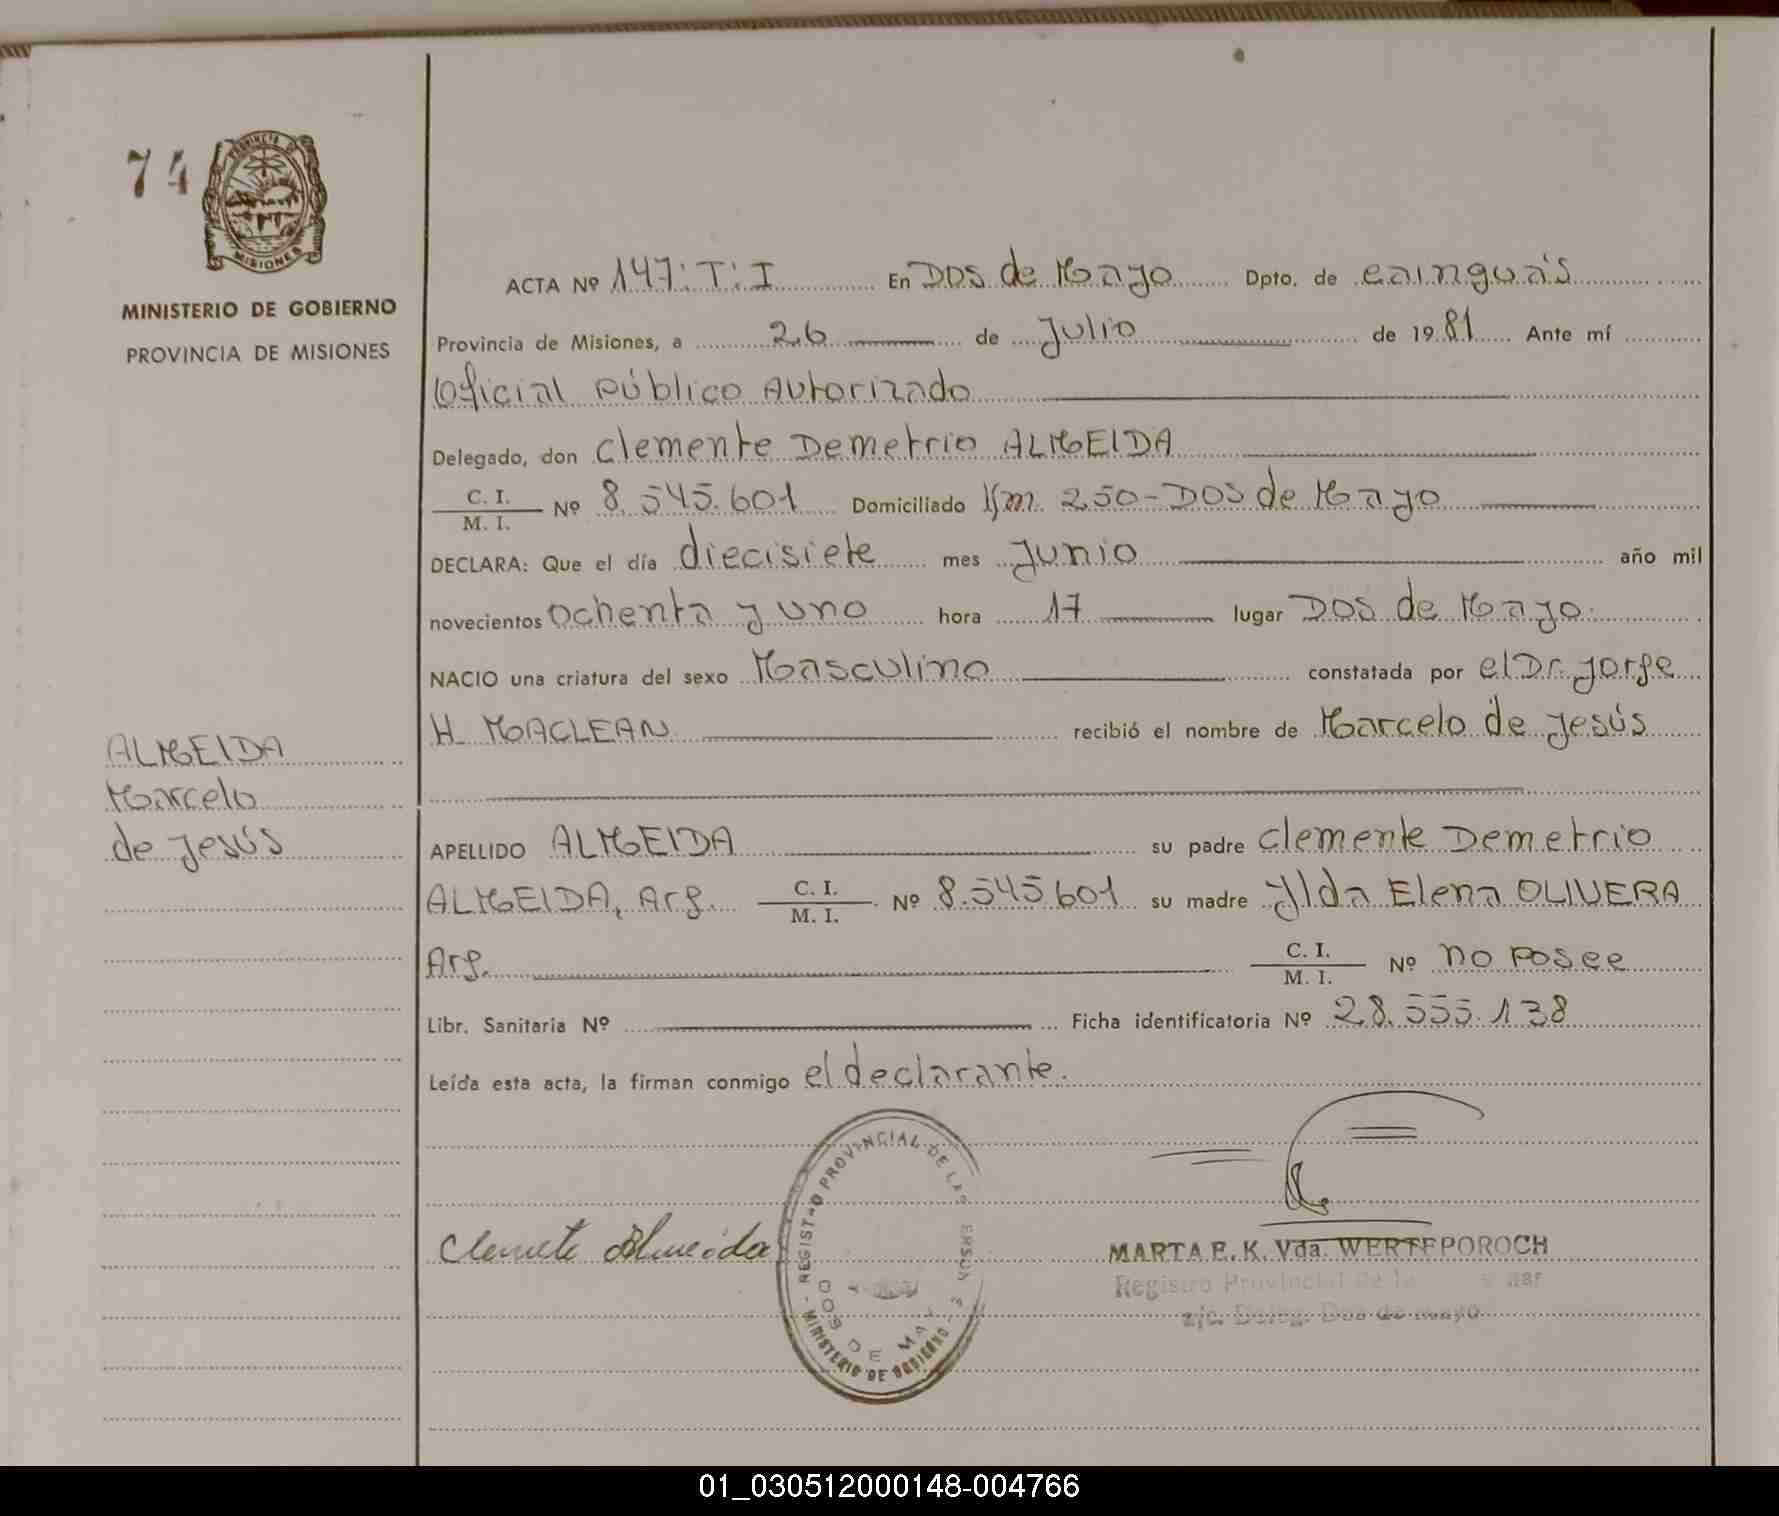 74
PROVINCIA DE
MISIONES
MINISTERIO DE GOBIERNO
PROVINCIA DE MISIONES
ALMEIDA
Marcelo
de Jesús
ACTA Nº 147:T:I En Dos de Mayo Dpto. de cainguás
Provincia de Misiones, a 26 de Julio de 1981 Ante mí
Oficial Público Autorizado
Delegado, don Clemente Demetrio ALMEIDA
C. I.
M. I. Nº 8.545.601 Domiciliado Km. 250-Dos de Mayo
DECLARA: Que el día diecisiete mes Junio año mil
novecientos ochenta y uno hora 17 lugar Dos de Mayo.
NACIO una criatura del sexo Masculino constatada por el Dr. Jorge
H. MACLEAN recibió el nombre de Marcelo de Jesús
APELLIDO ALMEIDA su padre Clemente Demetrio
ALMEIDA, Arg. C. I.
M. I. Nº 8.545.601 su madre Ylda Elena OLIVERA
Arg. C. I.
M. I. Nº no posee
Libr. Sanitaria Nº Ficha identificatoria Nº 28.555.138
Leída esta acta, la firman conmigo el declarante.
Clemete Almeida
REGISTRO PROVINCIAL DE LAS
DOS DE MAY
MINISTERIO DE GOBIERNO
MARTA E. K. Vda. WERTEPOROCH
Registro Provincial de
Deleg. Dos de Mayo
01_030512000148-004766